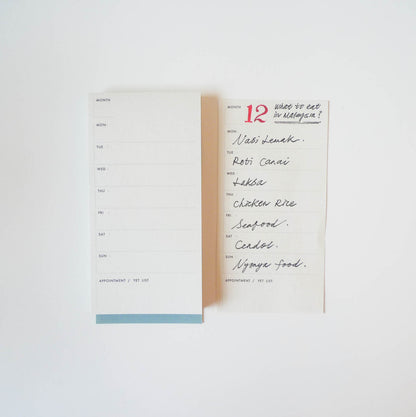 MONTH
MON
TUE
WED
THU
FRI
SAT
SUN
APPOINTMENT / YET LIST
MONTH 12 What to eat
in Malaysia?
MON
Nasi Lemak.
TUE
Roti Canai
WED
Laksa
THU
Chicken Rice
FRI
Seafood.
SAT
Cendol.
SUN
Nyonya food.
APPOINTMENT / YET LIST